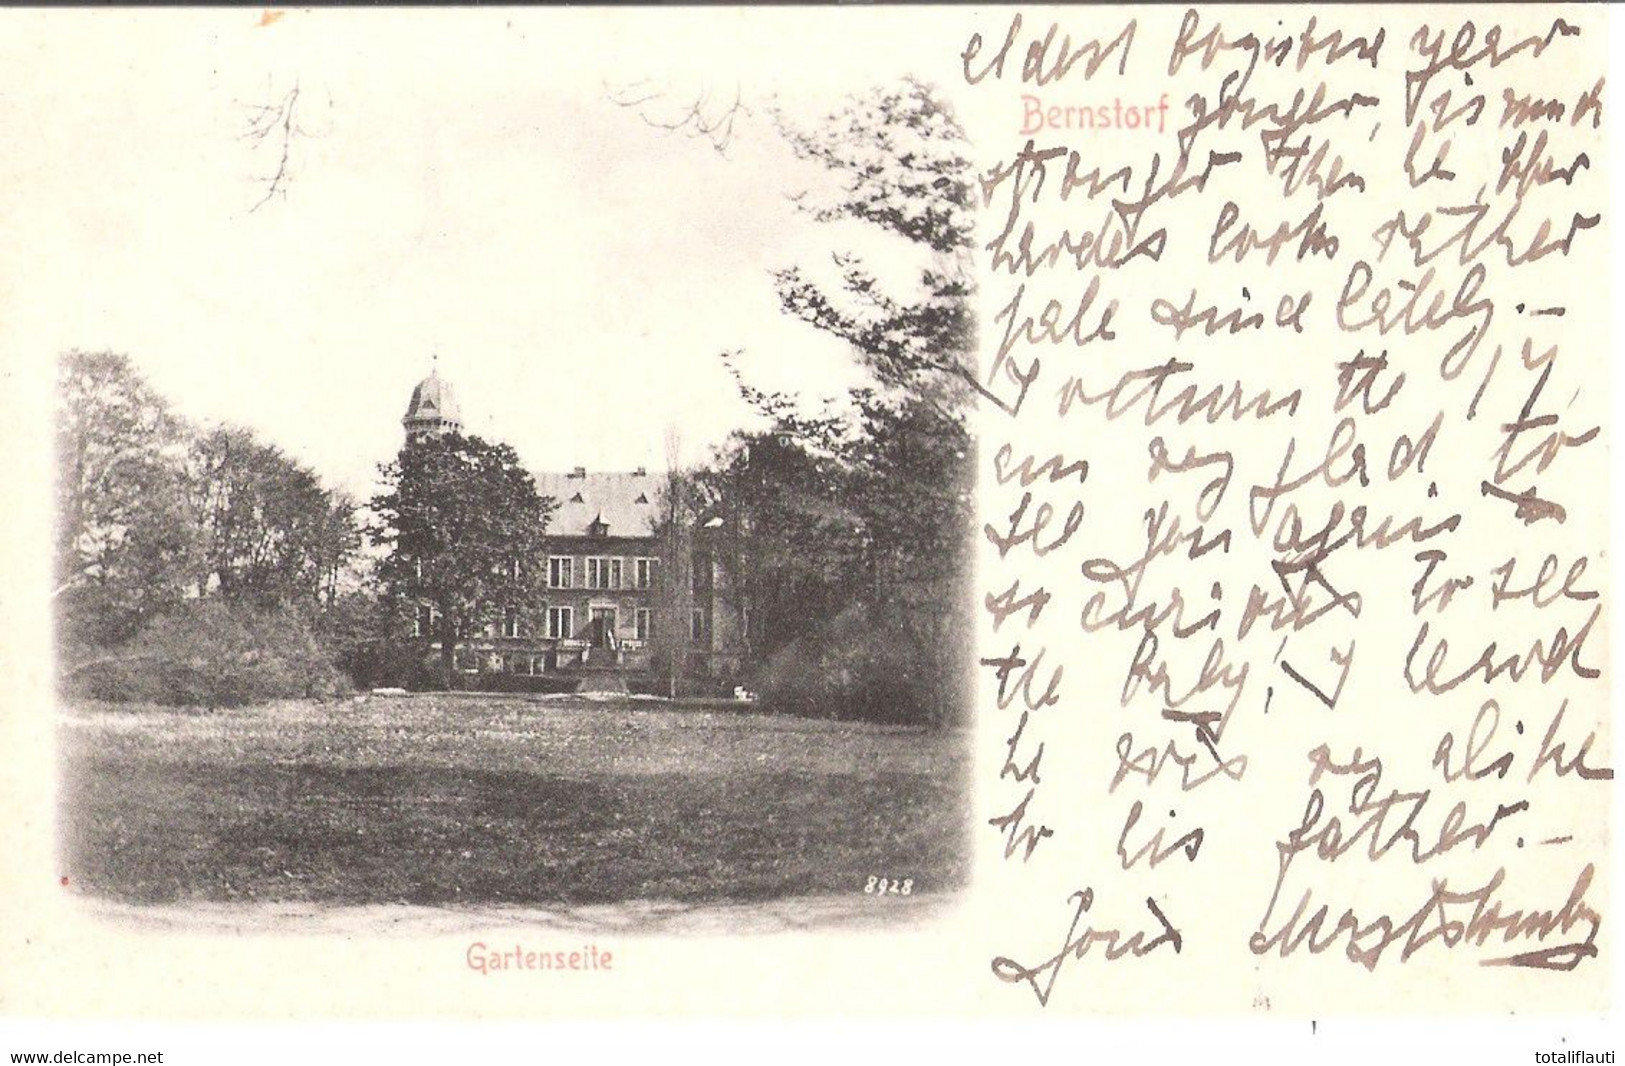 eldest boy is one year
Bernstorf
younger, is much
stronger then he, 
looks rether
pale since lately. –
I return the 17,
em very gled to
see you again
so curious to see
the baby, I heard
he was very alike
to his father. –
Yours
8928
Gartenseite
www.delcampe.net
totaliflauti